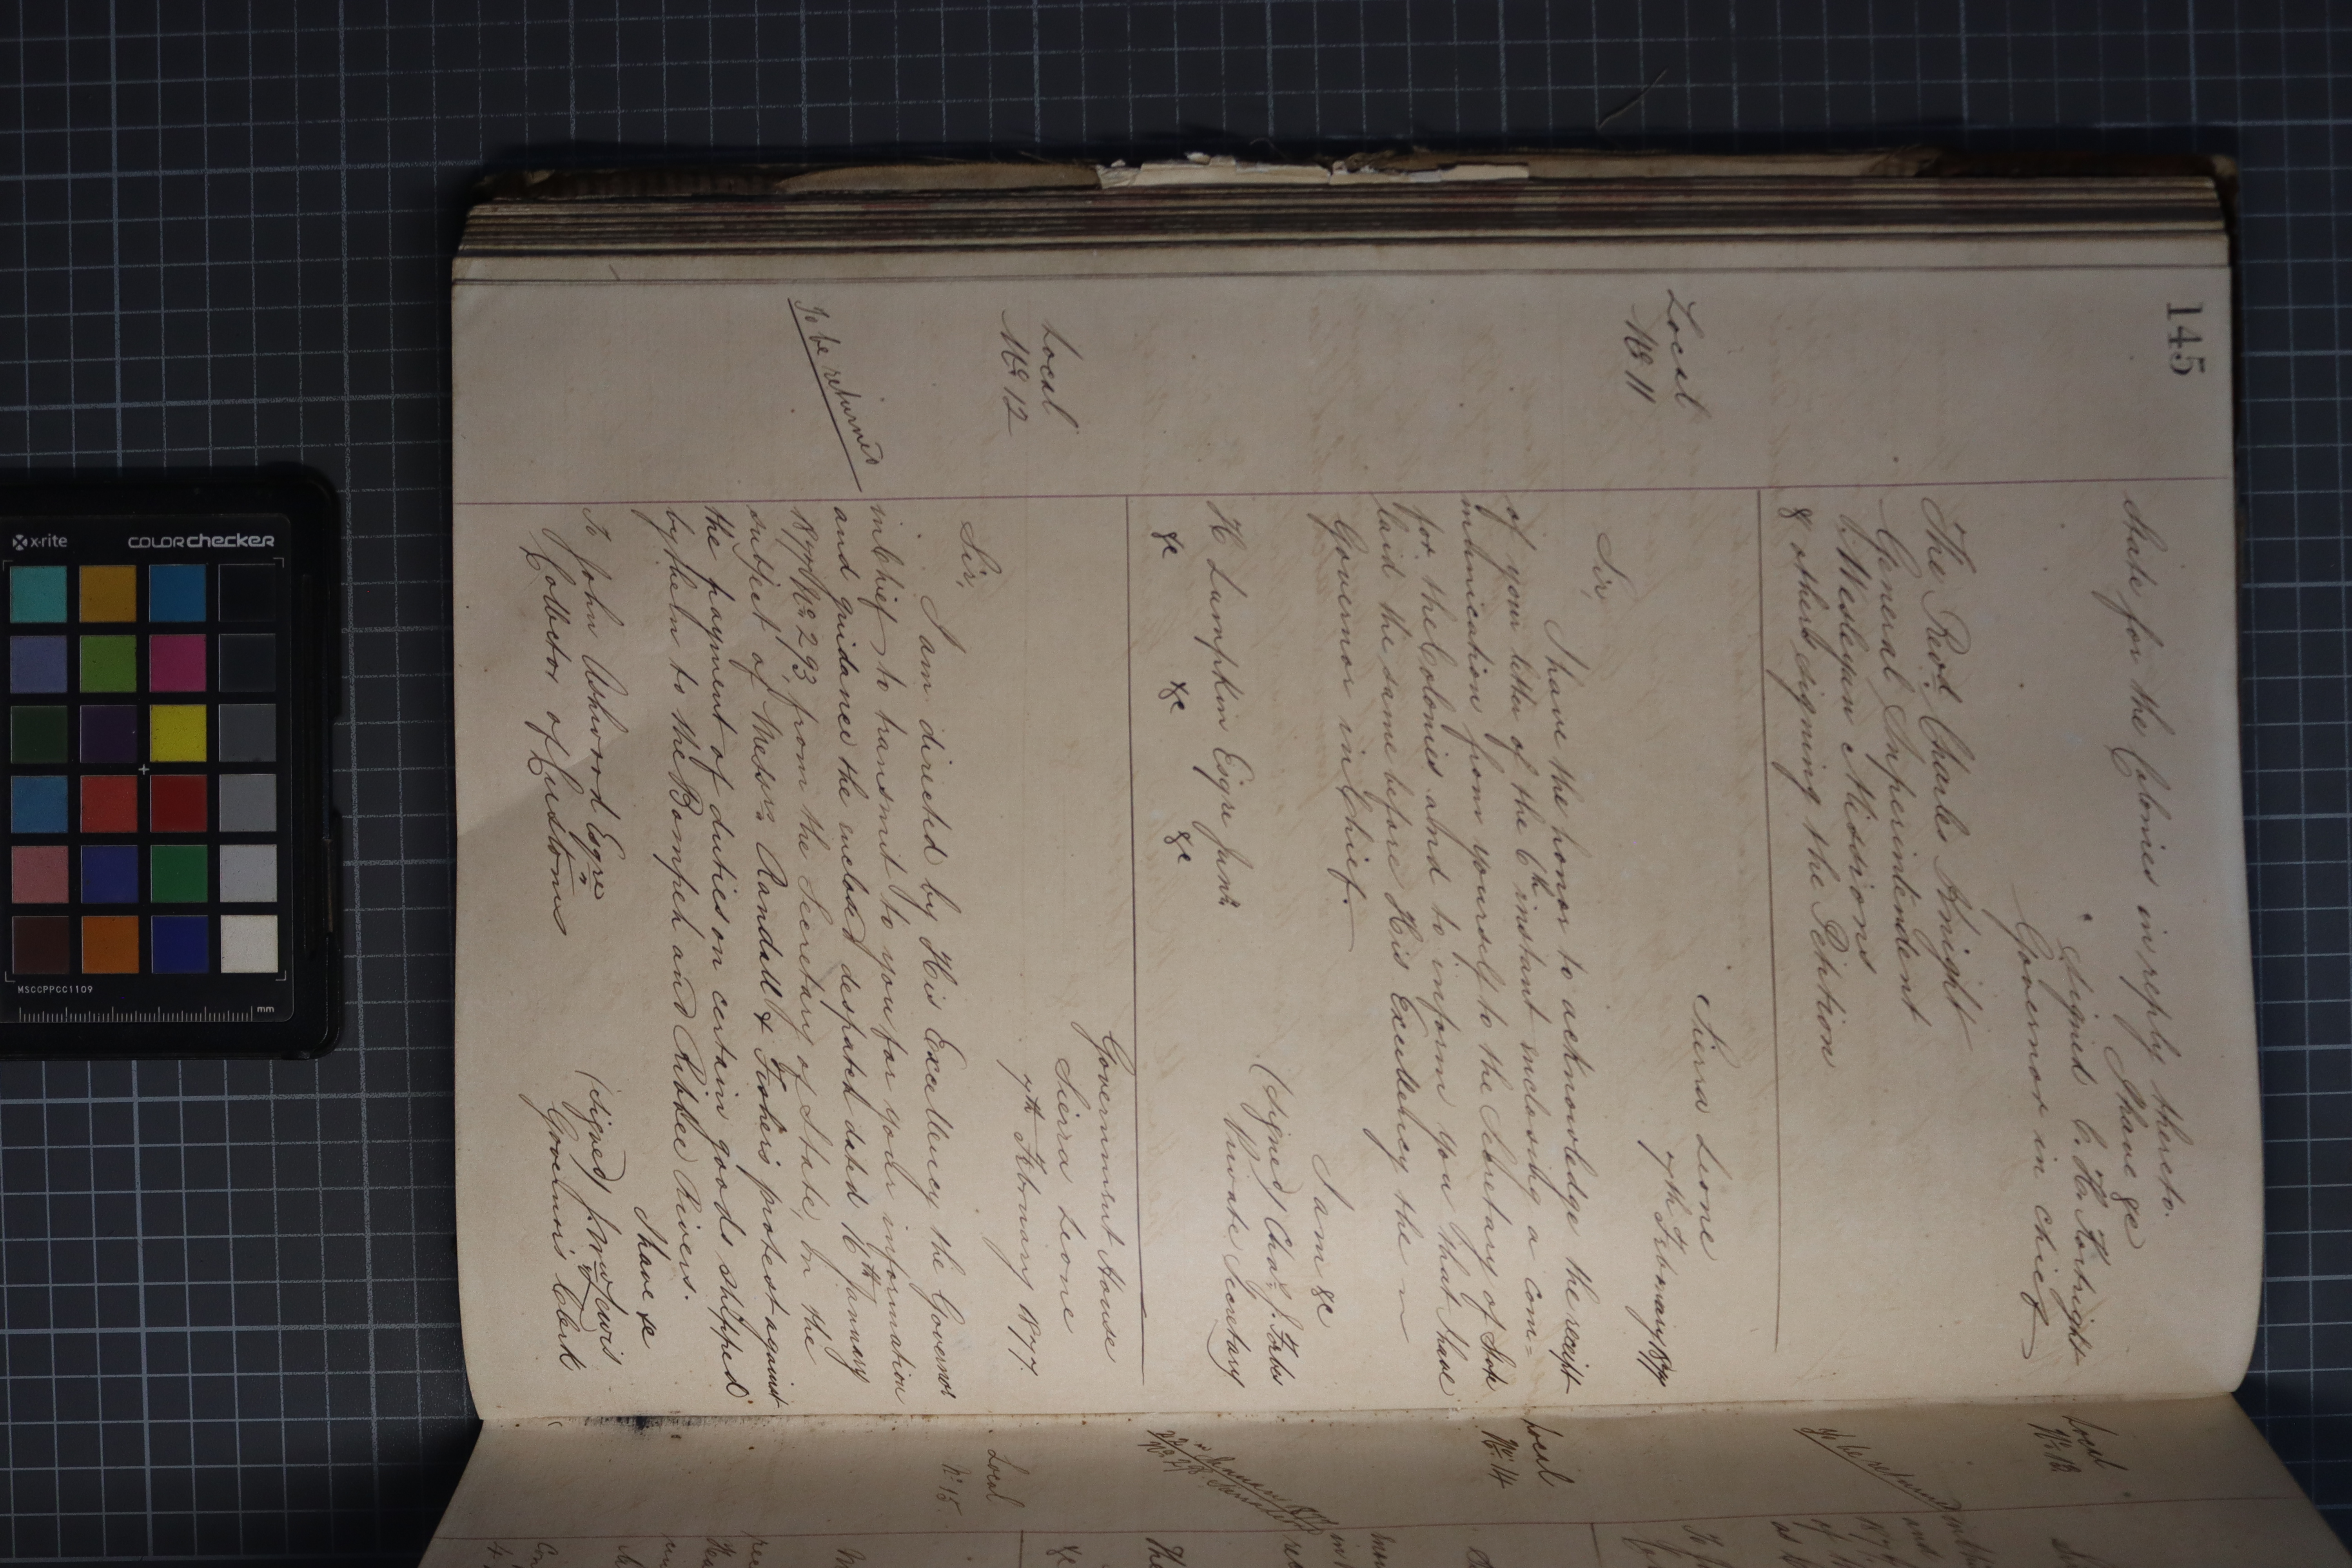 145
State for the Colonies in reply thereto.
I have &c
Signed C. H. Kortright
Governor in Chief
The Revd. Charles Knight
General Superintendent
Wesleyan Missions
& others signing the Petition
Local
No 11
Sierra Leone
7th February 1877
Sir,
I have the honor to acknowledge the receipt
of your letter of the 6th instant inclosing a com=
munication from yourself to the Secretary of State
for the Colonies and to inform you that I have
laid the same before His Excellency the
Governor in Chief.
I am &c
(Signed) Chas. J. Forbes
Private Secretary
H Lumpkin Esqre Junr.
&c &c &c
Local
No 12
Government House
Sierra Leone
7th February 1877.
Sir,
I am directed by His Excellency the Governor
in Chief to transmit to you for your information
To be returned
and guidance the enclosed despatch dated 16th January
1877 No 293, from the Secretary of State, on the
subject of Messrs Randall & Fisher's protest against
the payment of duties on certain goods shipped
by them to the Bompeh and Ribbee Rivers.
I have &c
(Signed) J. Mw. Lewis
Governor's Clerk
To John Ashwood Esqre
Collector of Customs
Local
No 13
To be returned
Local
No. 14
Local
No 15